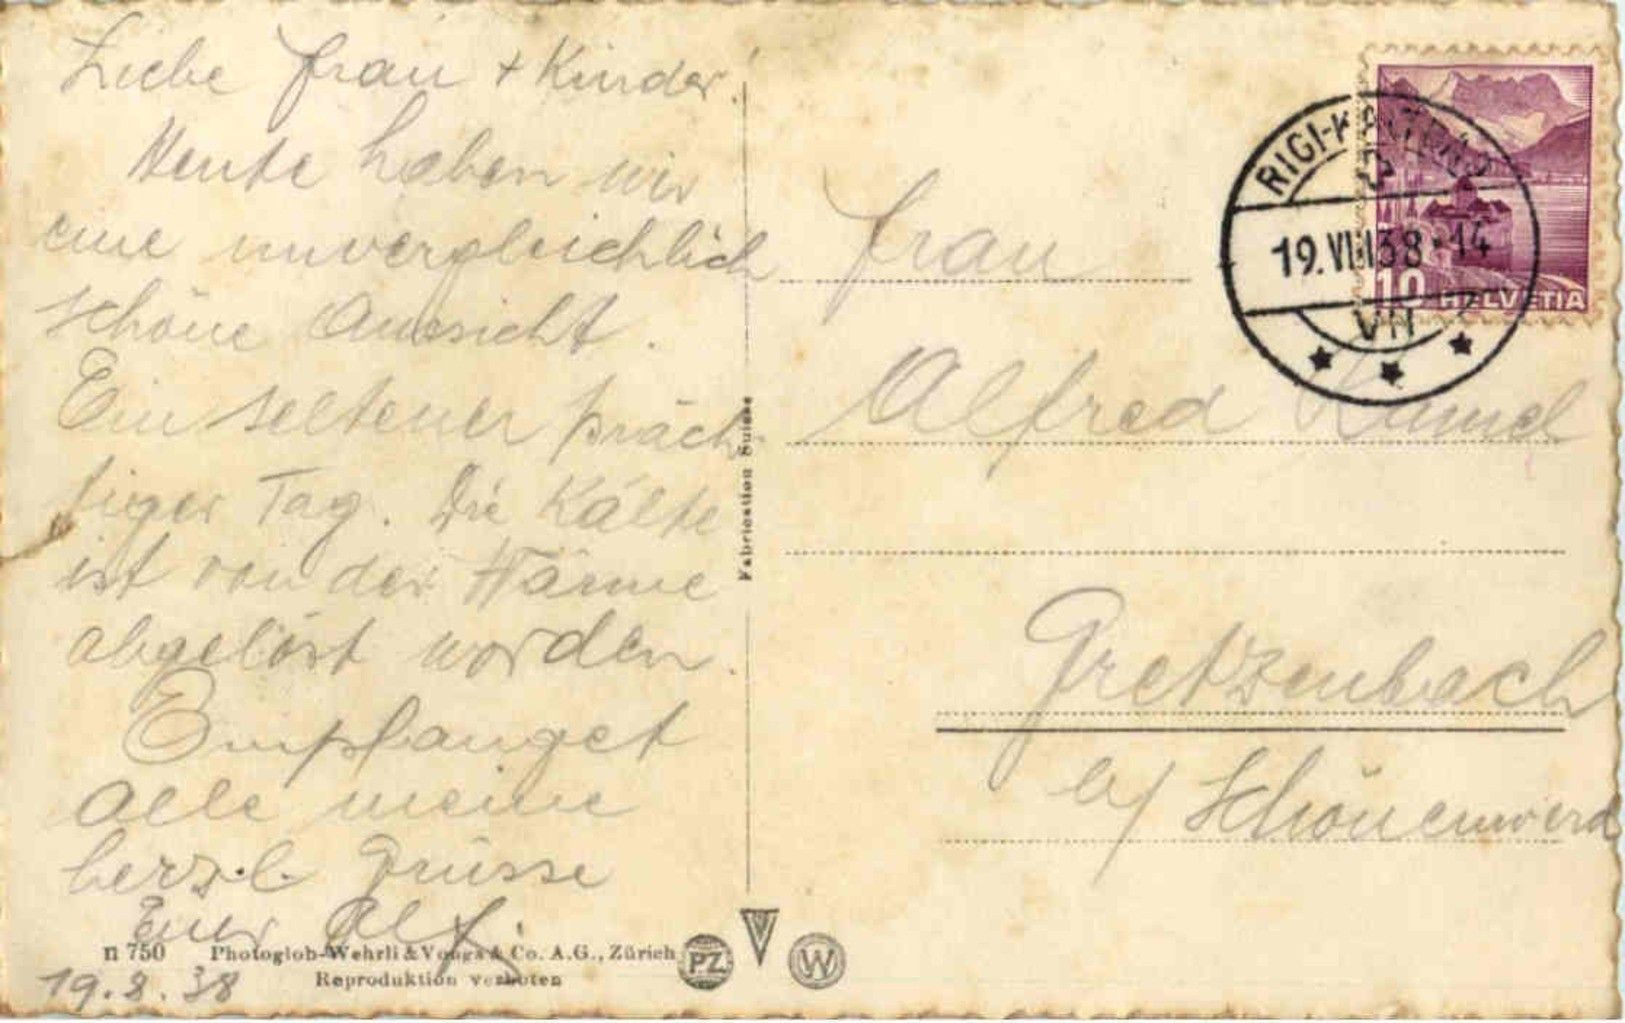 Liebe Frau + Kinder!
Heute haben wir
eine unvergleichlich
schöne Aussicht.
Ein seltener präch-
tiger Tag. Die Kälte
ist von der Wärme
abgelöst worden.
Empfanget
alle meine
herzl. Grüsse
Euer Alf.
19.8.38
n 750 Photoglob-Wehrli & Vouga & Co. A.G., Zürich
Reproduktion verboten
PZ V W
Fabrication Suisse
RIGI-
19.VIII38-14
VII
10 HELVETIA
Frau
Alfred
Gretzenbach
b/ Schönenwerd